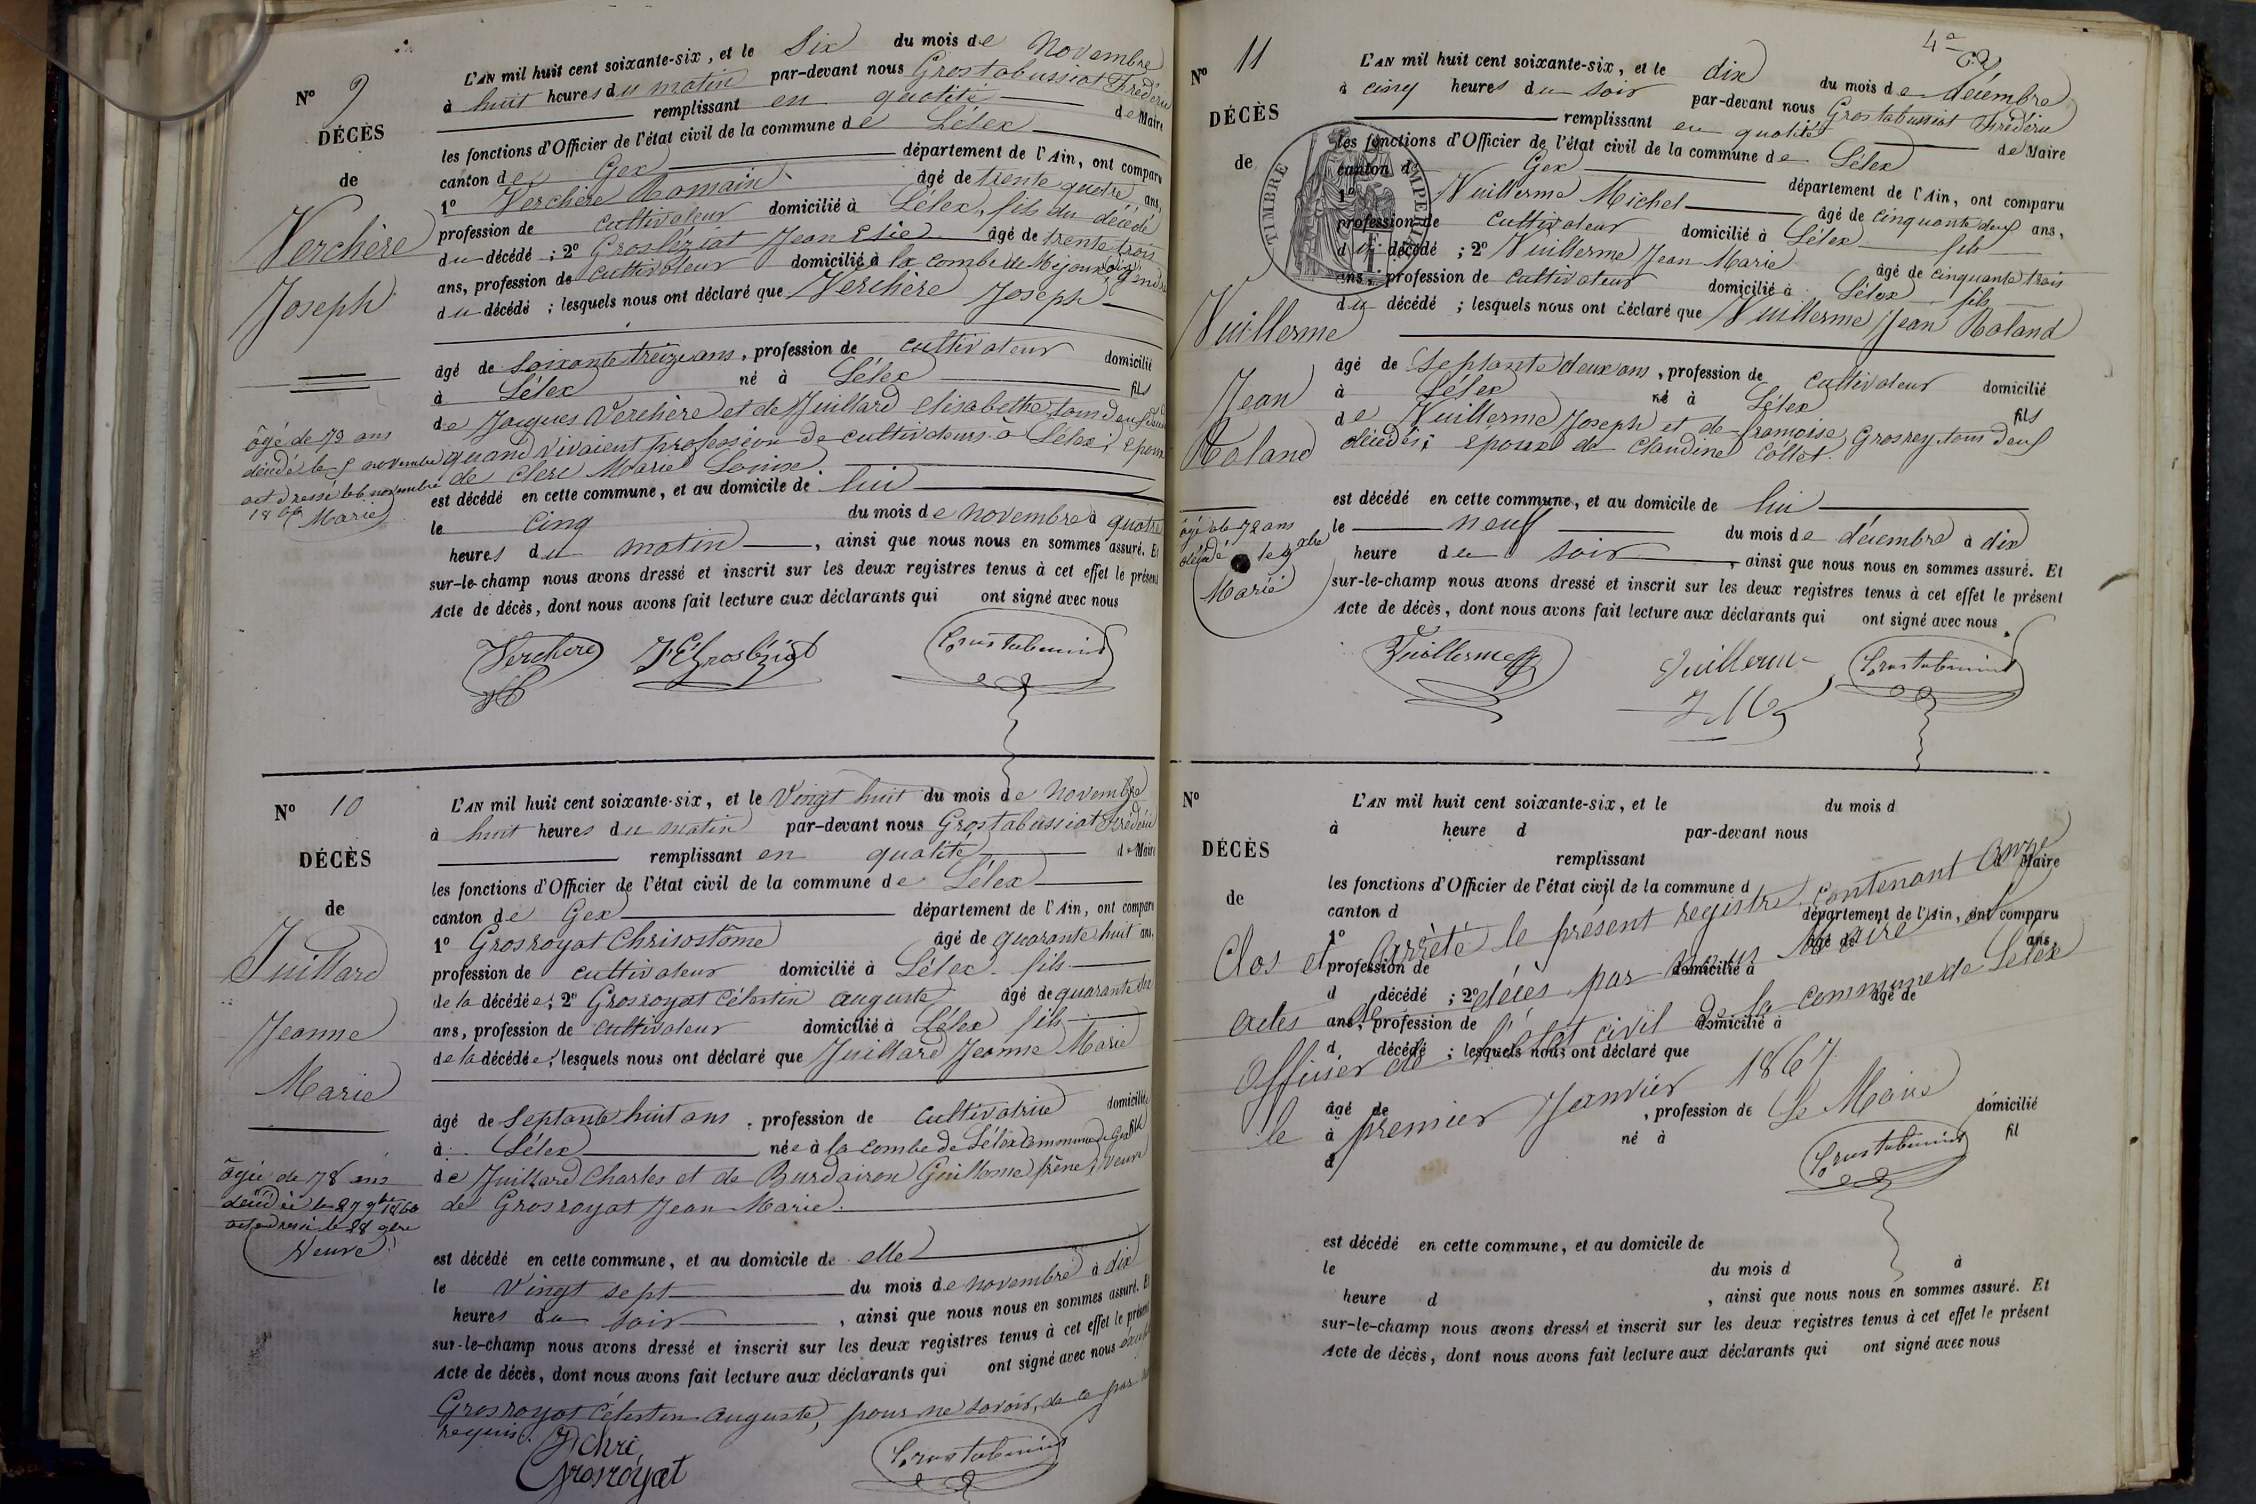 N° 9
DÉCÈS
de
Verchère
Joseph
âgé de 73 ans
décédé le 5 novembre
act dressé le 6 novembre
1866 Marié
L'AN mil huit cent soixante-six, et le Six du mois de Novembre
à huit heures du matin par-devant nous Grostabussiat Frédéric
remplissant en qualité de Maire
les fonctions d'Officier de l'état civil de la commune de Lélex
canton de Gex département de l'Ain, ont comparu
1° Verchère Romain âgé de trente quatre ans,
profession de cultivateur domicilié à Lélex, fils du décédé
du décédé ; 2° Grosléziat Jean Elie âgé de trente trois
ans, profession de cultivateur domicilié à la combe de Mijoux gendre
du décédé ; lesquels nous ont déclaré que Verchère Joseph
âgé de soixante treize ans, profession de cultivateur domicilié
à Lélex né à Lélex fils
de Jaques Verchère et de Juillard elisabethe, tous deux
quand vivaient profession de cultivateurs à Lélex ; époux
de Clerc Marie Louise.
est décédé en cette commune, et au domicile de lui
le Cinq du mois de novembre à quatre
heures du matin, ainsi que nous nous en sommes assuré. Et
sur-le-champ nous avons dressé et inscrit sur les deux registres tenus à cet effet le présent
Acte de décès, dont nous avons fait lecture aux déclarants qui ont signé avec nous
Verchere JEGrosléziat Grostabussiat
N° 10
DÉCÈS
de
Juillard
Jeanne
Marie
âgée de 78 ans
décédée le 27 9bre 1866
act dressé le 28 9bre
Veuve
L'AN mil huit cent soixante-six, et le Vingt huit du mois de Novembre
à huit heures du matin par-devant nous Grostabussiat Frédéric
remplissant en qualité de Maire
les fonctions d'Officier de l'état civil de la commune de Lélex
canton de Gex département de l'Ain, ont comparu
1° Grosroyat Chrisostôme âgé de quarante huit ans,
profession de cultivateur domicilié à Lélex. fils
de la décédée ; 2° Grosroyat Célestin auguste âgé de quarante
ans, profession de cultivateur domicilié à Lélex fils
de la décédée ; lesquels nous ont déclaré que Juillard Jeanne Marie
âgé de Septante huit ans, profession de cultivatrice domicilié
à Lélex née à la combe de Lélex commune de Gex fille
de Juillard Charles et de Burdairon Guillome frêne ; veuve
de Grosroyat Jean Marie.
est décédé en cette commune, et au domicile de elle
le Vingt sept du mois de novembre à dix
heures du soir, ainsi que nous nous en sommes assuré. Et
sur-le-champ nous avons dressé et inscrit sur les deux registres tenus à cet effet le présent
Acte de décès, dont nous avons fait lecture aux déclarants qui ont signé avec nous
Grosroyat Célestin auguste, pour ne savoir, de ce par
requis. Jchri
Grosroyat Grostabussiat
4e
N° 11
DÉCÈS
de
Vuillerme
Jean
Roland
âgé de 72 ans
décédé le 9 xbre
Marié
TIMBRE IMPERIAL
L'AN mil huit cent soixante-six, et le dix du mois de décembre
à cinq heures du soir par-devant nous Grostabussiat Frédéric
remplissant en qualité de Maire
les fonctions d'Officier de l'état civil de la commune de Lélex
canton de Gex département de l'Ain, ont comparu
1° Vuillerme Michel âgé de cinquante deux ans,
profession de cultivateur domicilié à Lélex fils
du décédé ; 2° Vuillerme Jean Marie âgé de cinquante trois
ans, profession de cultivateur domicilié à Lélex fils
du décédé ; lesquels nous ont déclaré que Vuillerme Jean Roland
âgé de Septante deux ans, profession de cultivateur domicilié
à Lélex né à Lélex fils
de Vuillerme Joseph et de françoise Grosrey tous deux
décédés ; époux de Claudine Collet.
est décédé en cette commune, et au domicile de lui
le neuf du mois de décembre à dix
heure du soir, ainsi que nous nous en sommes assuré. Et
sur-le-champ nous avons dressé et inscrit sur les deux registres tenus à cet effet le présent
Acte de décès, dont nous avons fait lecture aux déclarants qui ont signé avec nous
Vuillerme Vuillerme Grostabussiat
N°
DÉCÈS
de
L'AN mil huit cent soixante-six, et le du mois d
à heure d par-devant nous
remplissant de Maire
les fonctions d'Officier de l'état civil de la commune d
canton d département de l'Ain, ont comparu
1° âgé de ans,
profession de domicilié à
d décédé ; 2° âgé de
ans, profession de domicilié à
d décédé ; lesquels nous ont déclaré que
âgé de , profession de domicilié
à né à fil
d
Clos et Arrêté le présent registre, contenant Onze
actes de décès par nous Maire
officier de l'état civil de la commune de Lélex
le premier Janvier 1867
Le Maire
Grostabussiat
est décédé en cette commune, et au domicile de
le du mois d à
heure d , ainsi que nous nous en sommes assuré. Et
sur-le-champ nous avons dressé et inscrit sur les deux registres tenus à cet effet le présent
Acte de décès, dont nous avons fait lecture aux déclarants qui ont signé avec nous